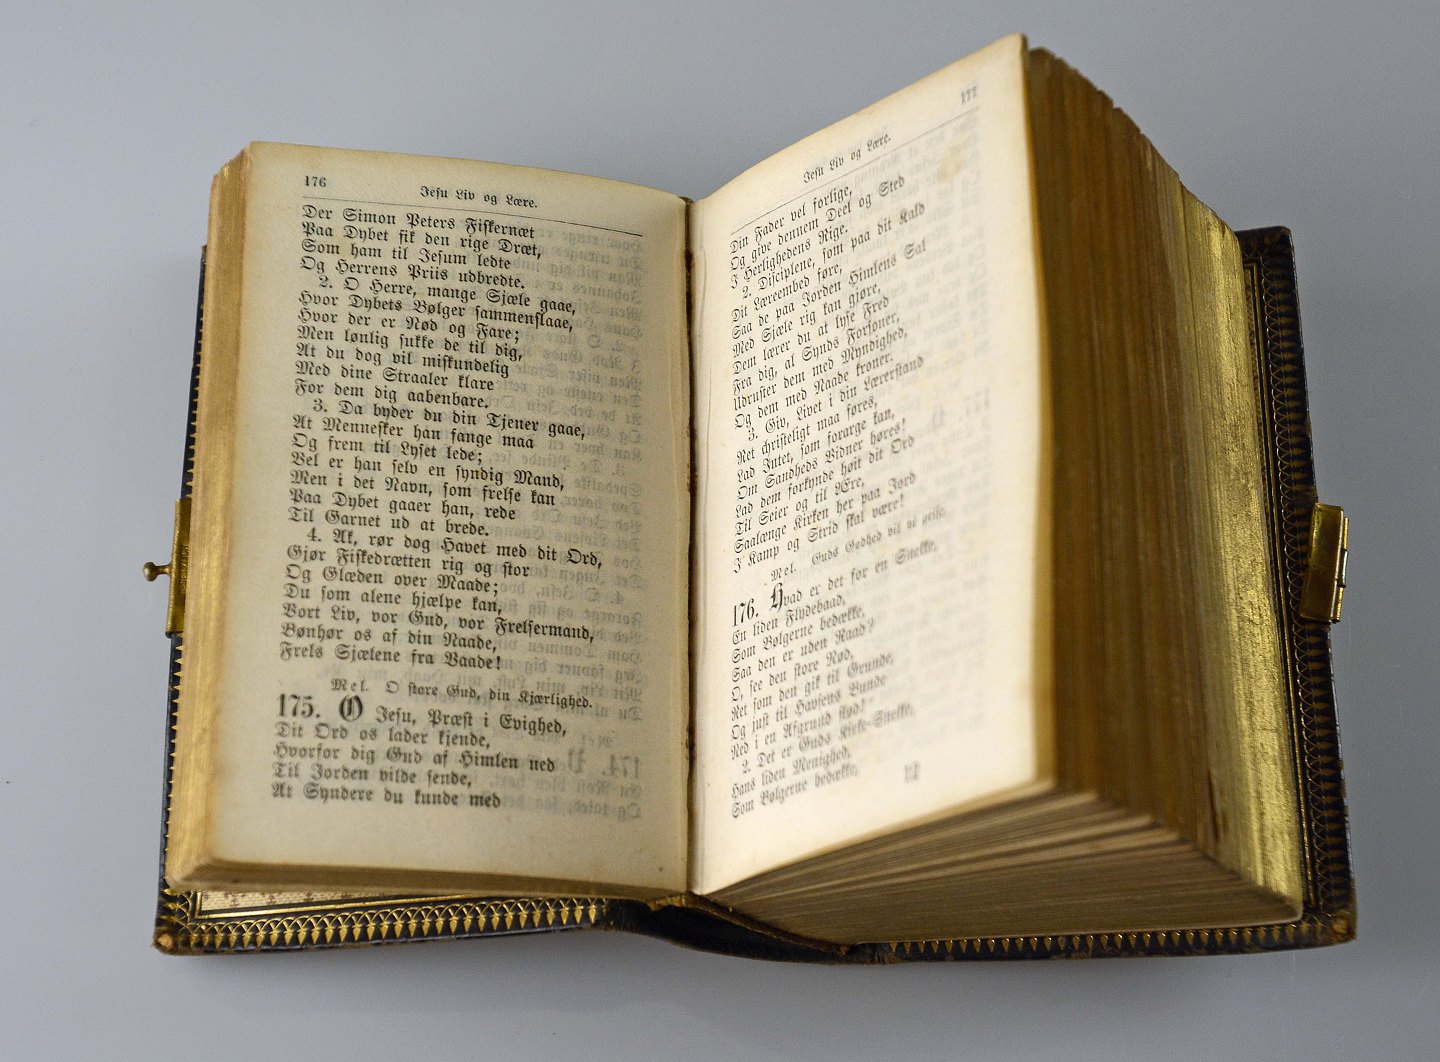 176
Jesu Liv og Lære.
Der Simon Peters Fiskernæt
Paa Dybet fik den rige Dræt,
Som ham til Jesum ledte
Og Herrens Priis udbredte.
2. O Herre, mange Sjæle gaae,
Hvor Dybets Bølger sammenslaae,
Hvor der er Nød og Fare;
Men lønlig sukke de til dig,
At du dog vil miskundelig
Med dine Straaler klare
For dem dig aabenbare.
3. Da byder du din Tjener gaae,
At Mennesker han fange maa
Og frem til Lyset lede;
Vel er han selv en syndig Mand,
Men i det Navn, som frelse kan
Paa Dybet gaaer han, rede
Til Garnet ud at brede.
4. Ak, rør dog Havet med dit Ord,
Gjør Fiskedrætten rig og stor
Og Glæden over Maade;
Du som alene hjælpe kan,
Vort Liv, vor Gud, vor Frelsermand,
Bønhør os af din Naade,
Frels Sjælene fra Vaade!
Mel. O store Gud, din Kjærlighed.
175. O Jesu, Præst i Evighed,
Dit Ord os lader kjende,
Hvorfor dig Gud af Himlen ned
Til Jorden vilde sende,
At Syndere du kunde med
177
Jesu Liv og Lære.
Din Fader vel forlige,
Og give dennem Deel og Sted
I Herlighedens Rige.
2. Disciplene, som paa dit Kald
Dit Læreembed føre,
Saa de paa Jorden Himlens Sal
Med Sjæle rig kan gjøre,
Dem lærer du at lyse Fred
Fra dig, al Synds Forsoner,
Udruster dem med Myndighed,
Og dem med Naade kroner.
3. Giv, Livet i din Lærerstand
Ret christeligt maa føres,
Lad Intet, som forarge kan,
Om Sandheds Vidner høres!
Lad dem forkynde høit dit Ord
Til Seier og til Ære,
Saalænge Kirken her paa Jord
I Kamp og Strid skal være!
Mel. Guds Godhed vil vi prise.
176. Hvad er det for en Snekke,
En liden Flydebaad,
Som Bølgerne bedække,
Saa den er uden Raad?
O, see den store Nød,
Ret som den gik til Grunde,
Og just til Havsens Bunde
Ned i en Afgrund skød!
2. Det er Guds Kirke-Snekke,
Hans liden Menighed,
Som Bølgerne bedække,
12